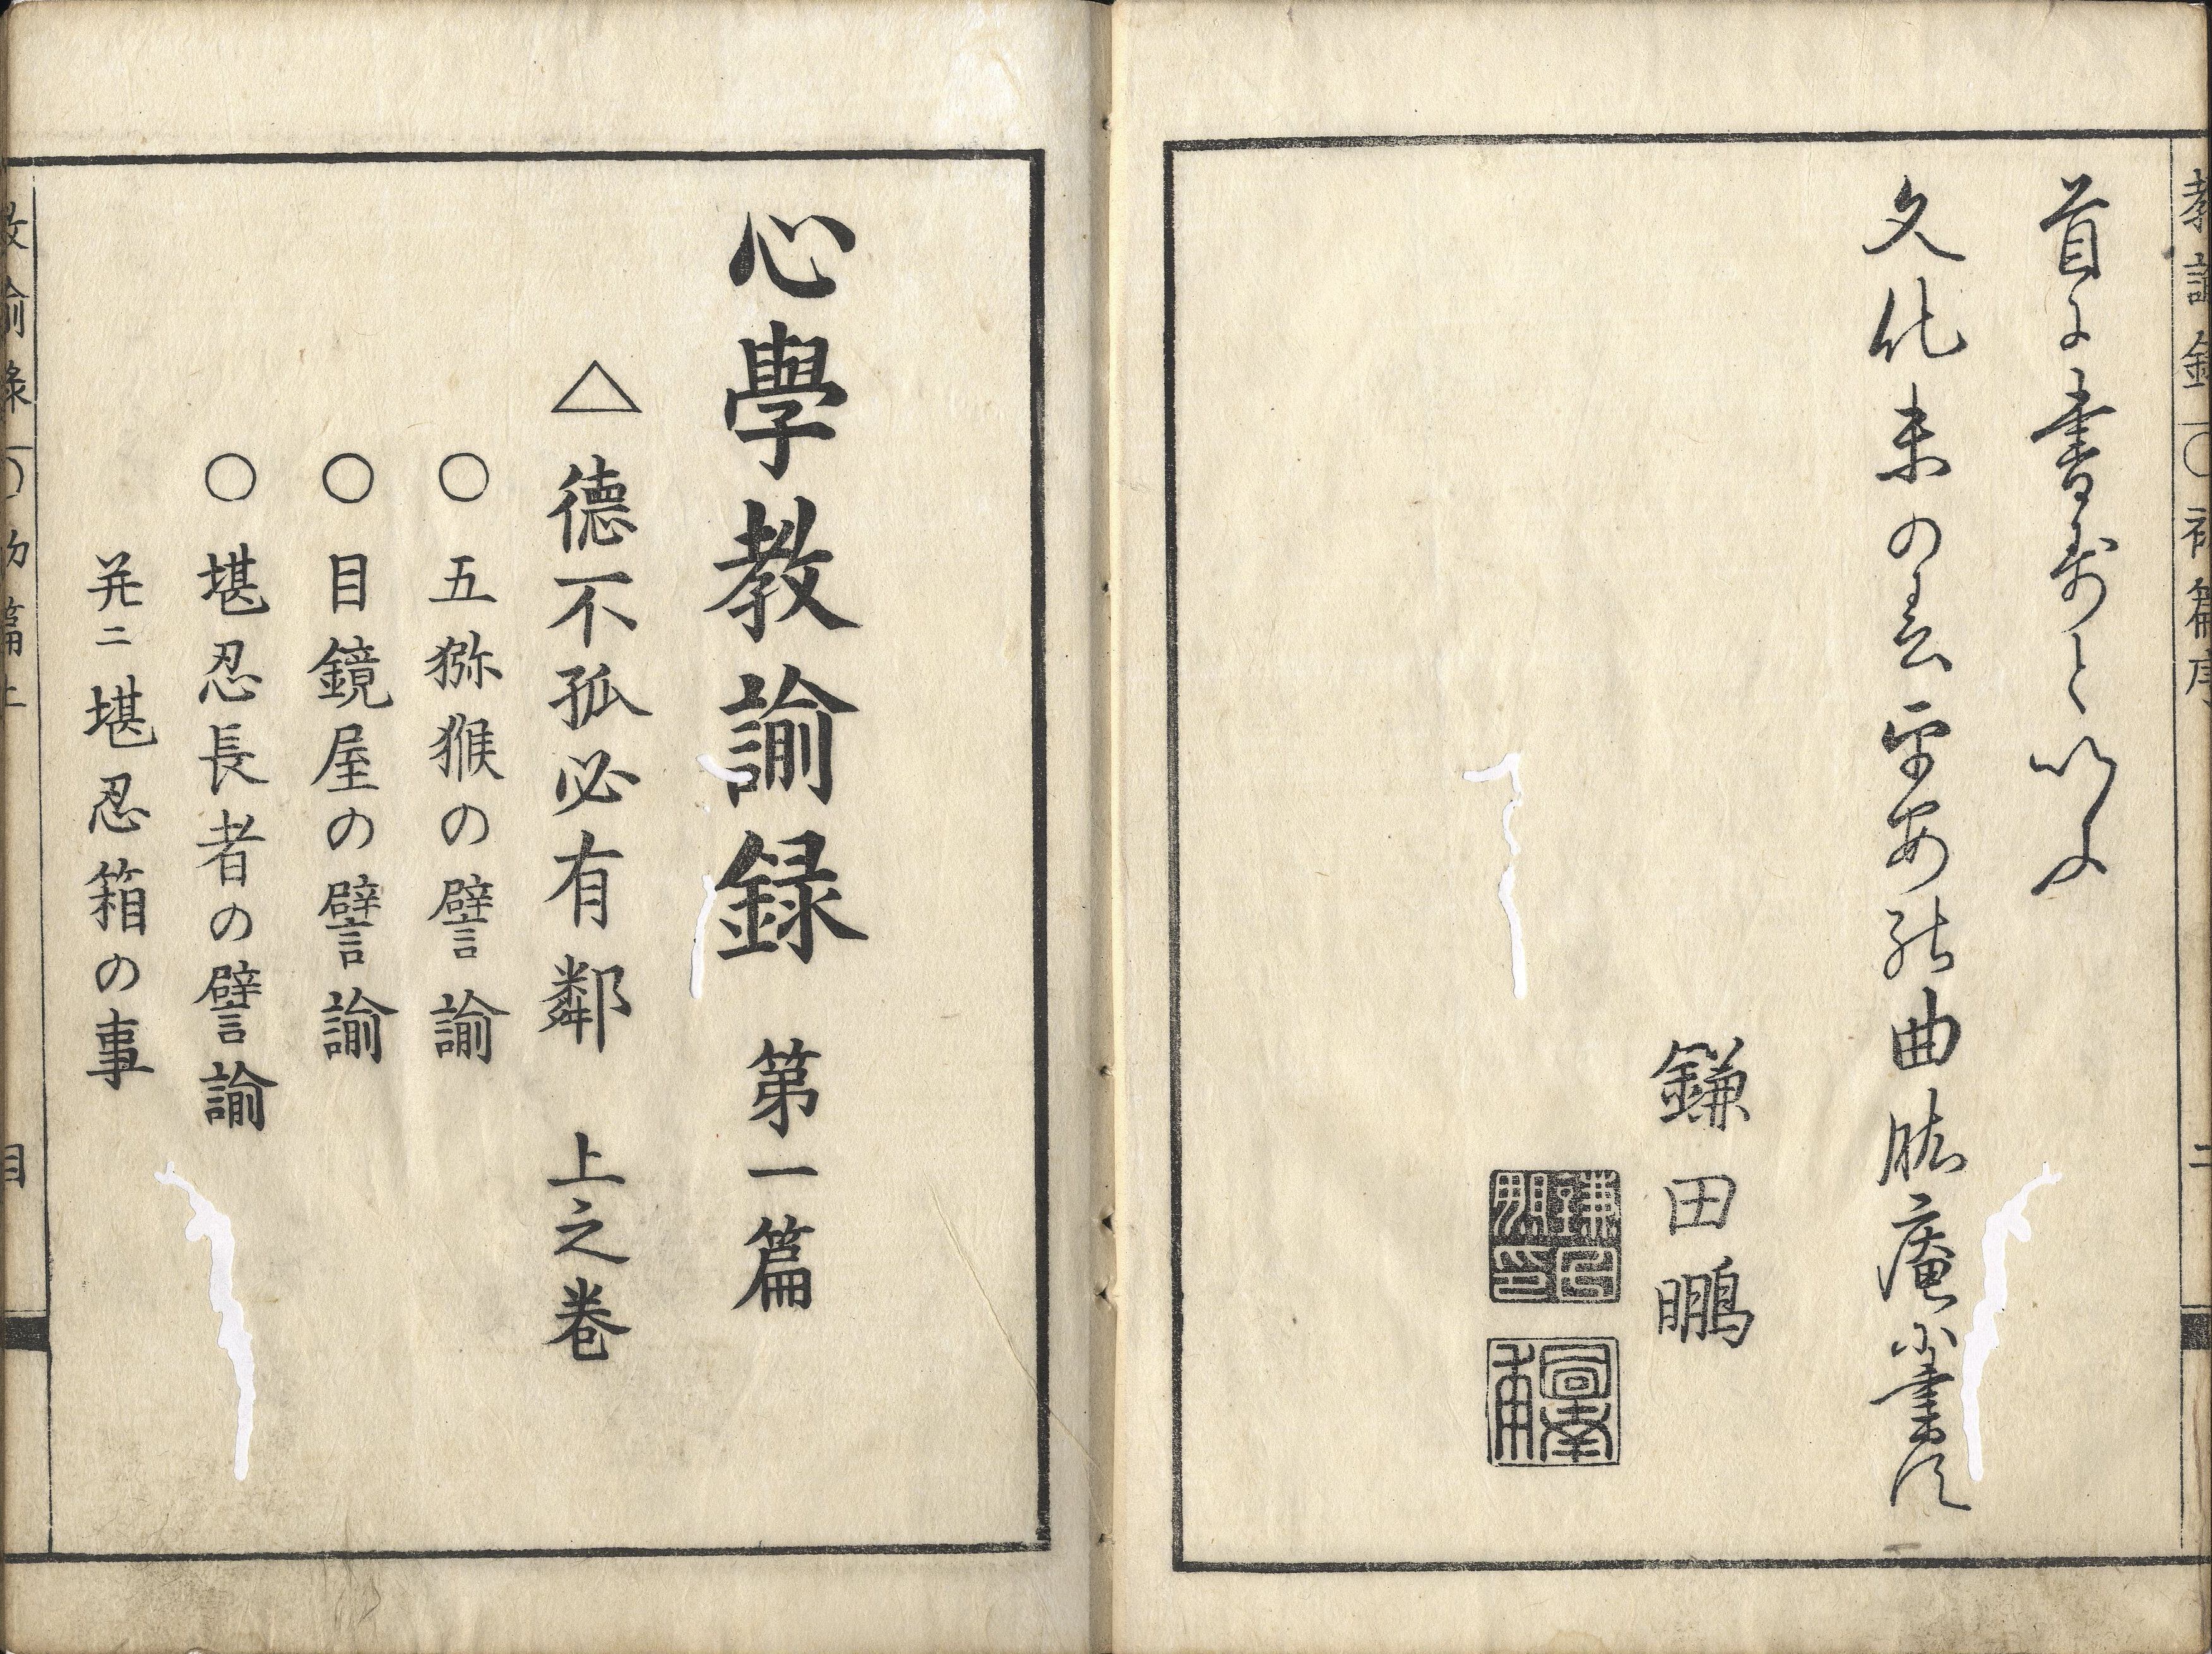 教諭録 〇初篇序 二
首に書すと以ふ
文化未の春平安能曲肱庵に書す
鎌田鵬
心學教諭録 第一篇
△德不孤必有鄰 上之卷
〇五猕猴の譬諭
〇目鏡屋の譬諭
〇堪忍長者の譬諭
并ニ堪忍箱の事
教諭録 〇初篇上 目